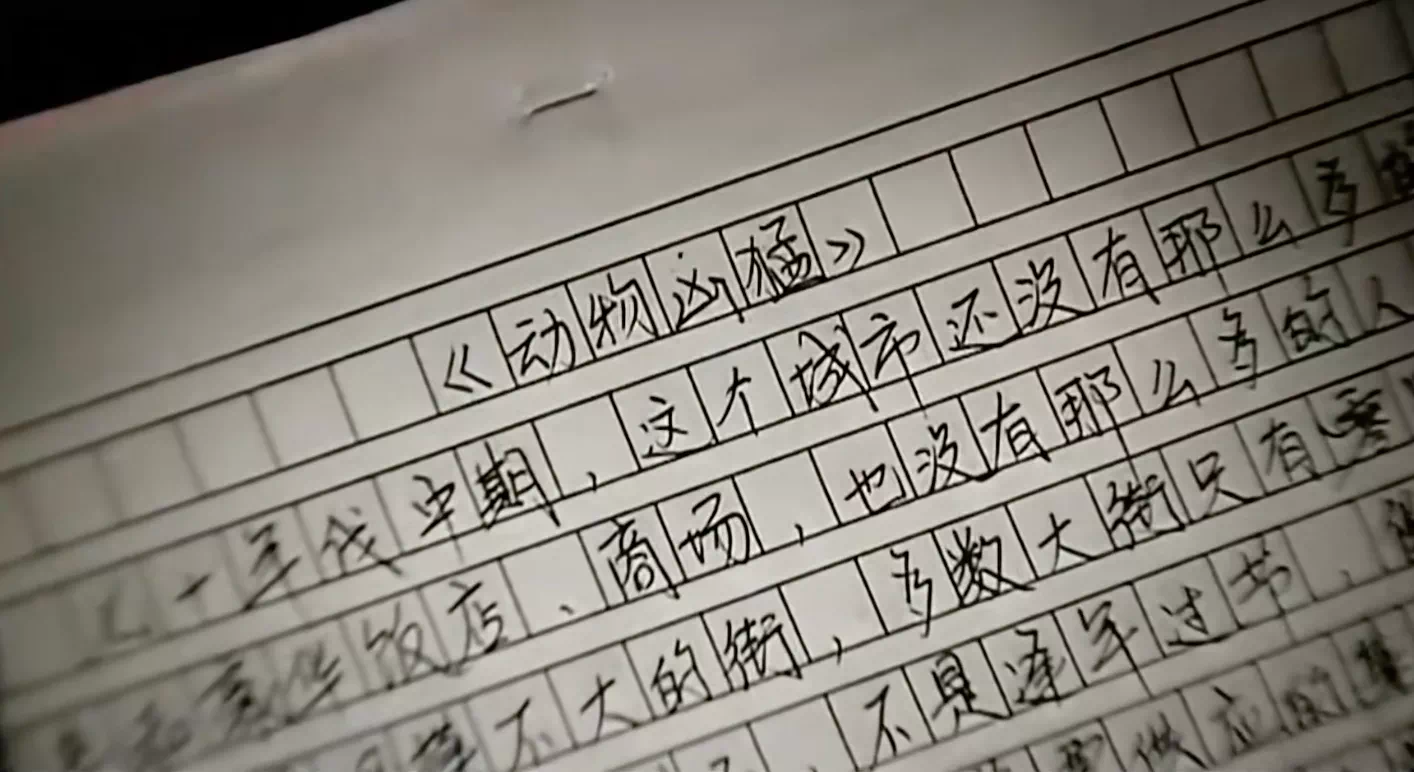 《动物凶猛》
七十年代中期，这个城市还没有那么多的
豪华饭店、商场，也没有那么多的人
不大的街，多数大街只有
不是逢年过节，
供应的